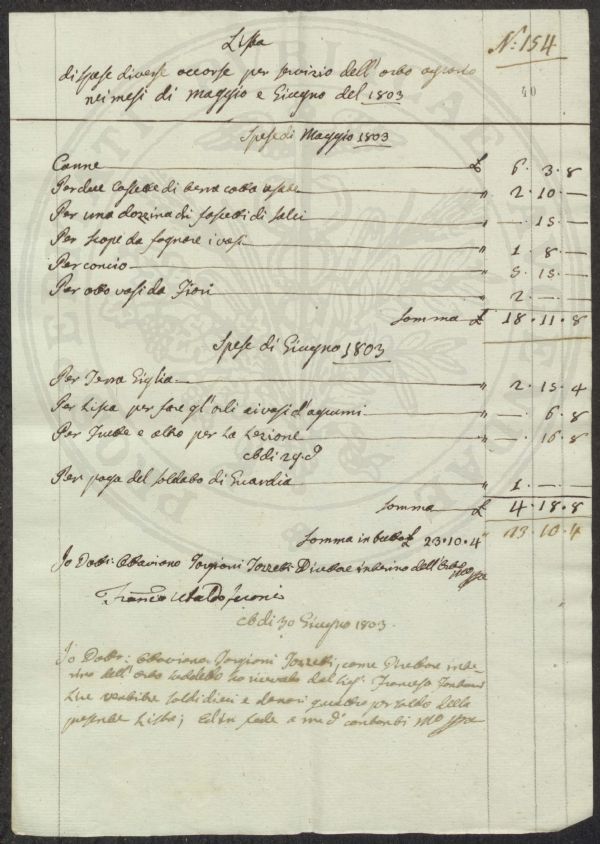 N.° 154
40
Lista
di spese diverse occorse per servizio dell'orto agrario
nei mesi di Maggio e Giugno del 1803
Spese di Maggio 1803
Canne £ 6. 3. 8
Per due Cassette di terra cotta usate " 2. 10. —
Per una dozzina di fascetti di Salci " —. 15. —
Per scope da fognare i vasi " 1. 8. —
Per concio " 5. 15. —
Per otto vasi da Fiori " 2. —. —
Somma £ 18. 11. 8
Spese di Giugno 1803
Per Terra Giglia " 2. 15. 4
Per Lista per fare gl'orli ai vasi d'agrumi " —. 6. 8
Per Frutte e altro per la Lezione " —. 16. 8
di 29. d°
Per paga del soldato di Guardia " 1. —
Somma £ 4. 18. 8
Somma in tutto £ 23. 10. 4 " 23. 10. 4
Io Dott: Ottaviano Targioni Tozzetti Direttore interino dell'Orto
Franco Ubaldo
di 30 Giugno 1803.
Io Dott: Ottaviano Targioni Tozzetti, come Direttore inte
rino dell'Orto suddetto ho ricevuto dal Sig. Francesco
Lire ventitre soldi dieci e denari quattro per saldo della
presente Lista; ed in fede a me d° contanti mo ppa